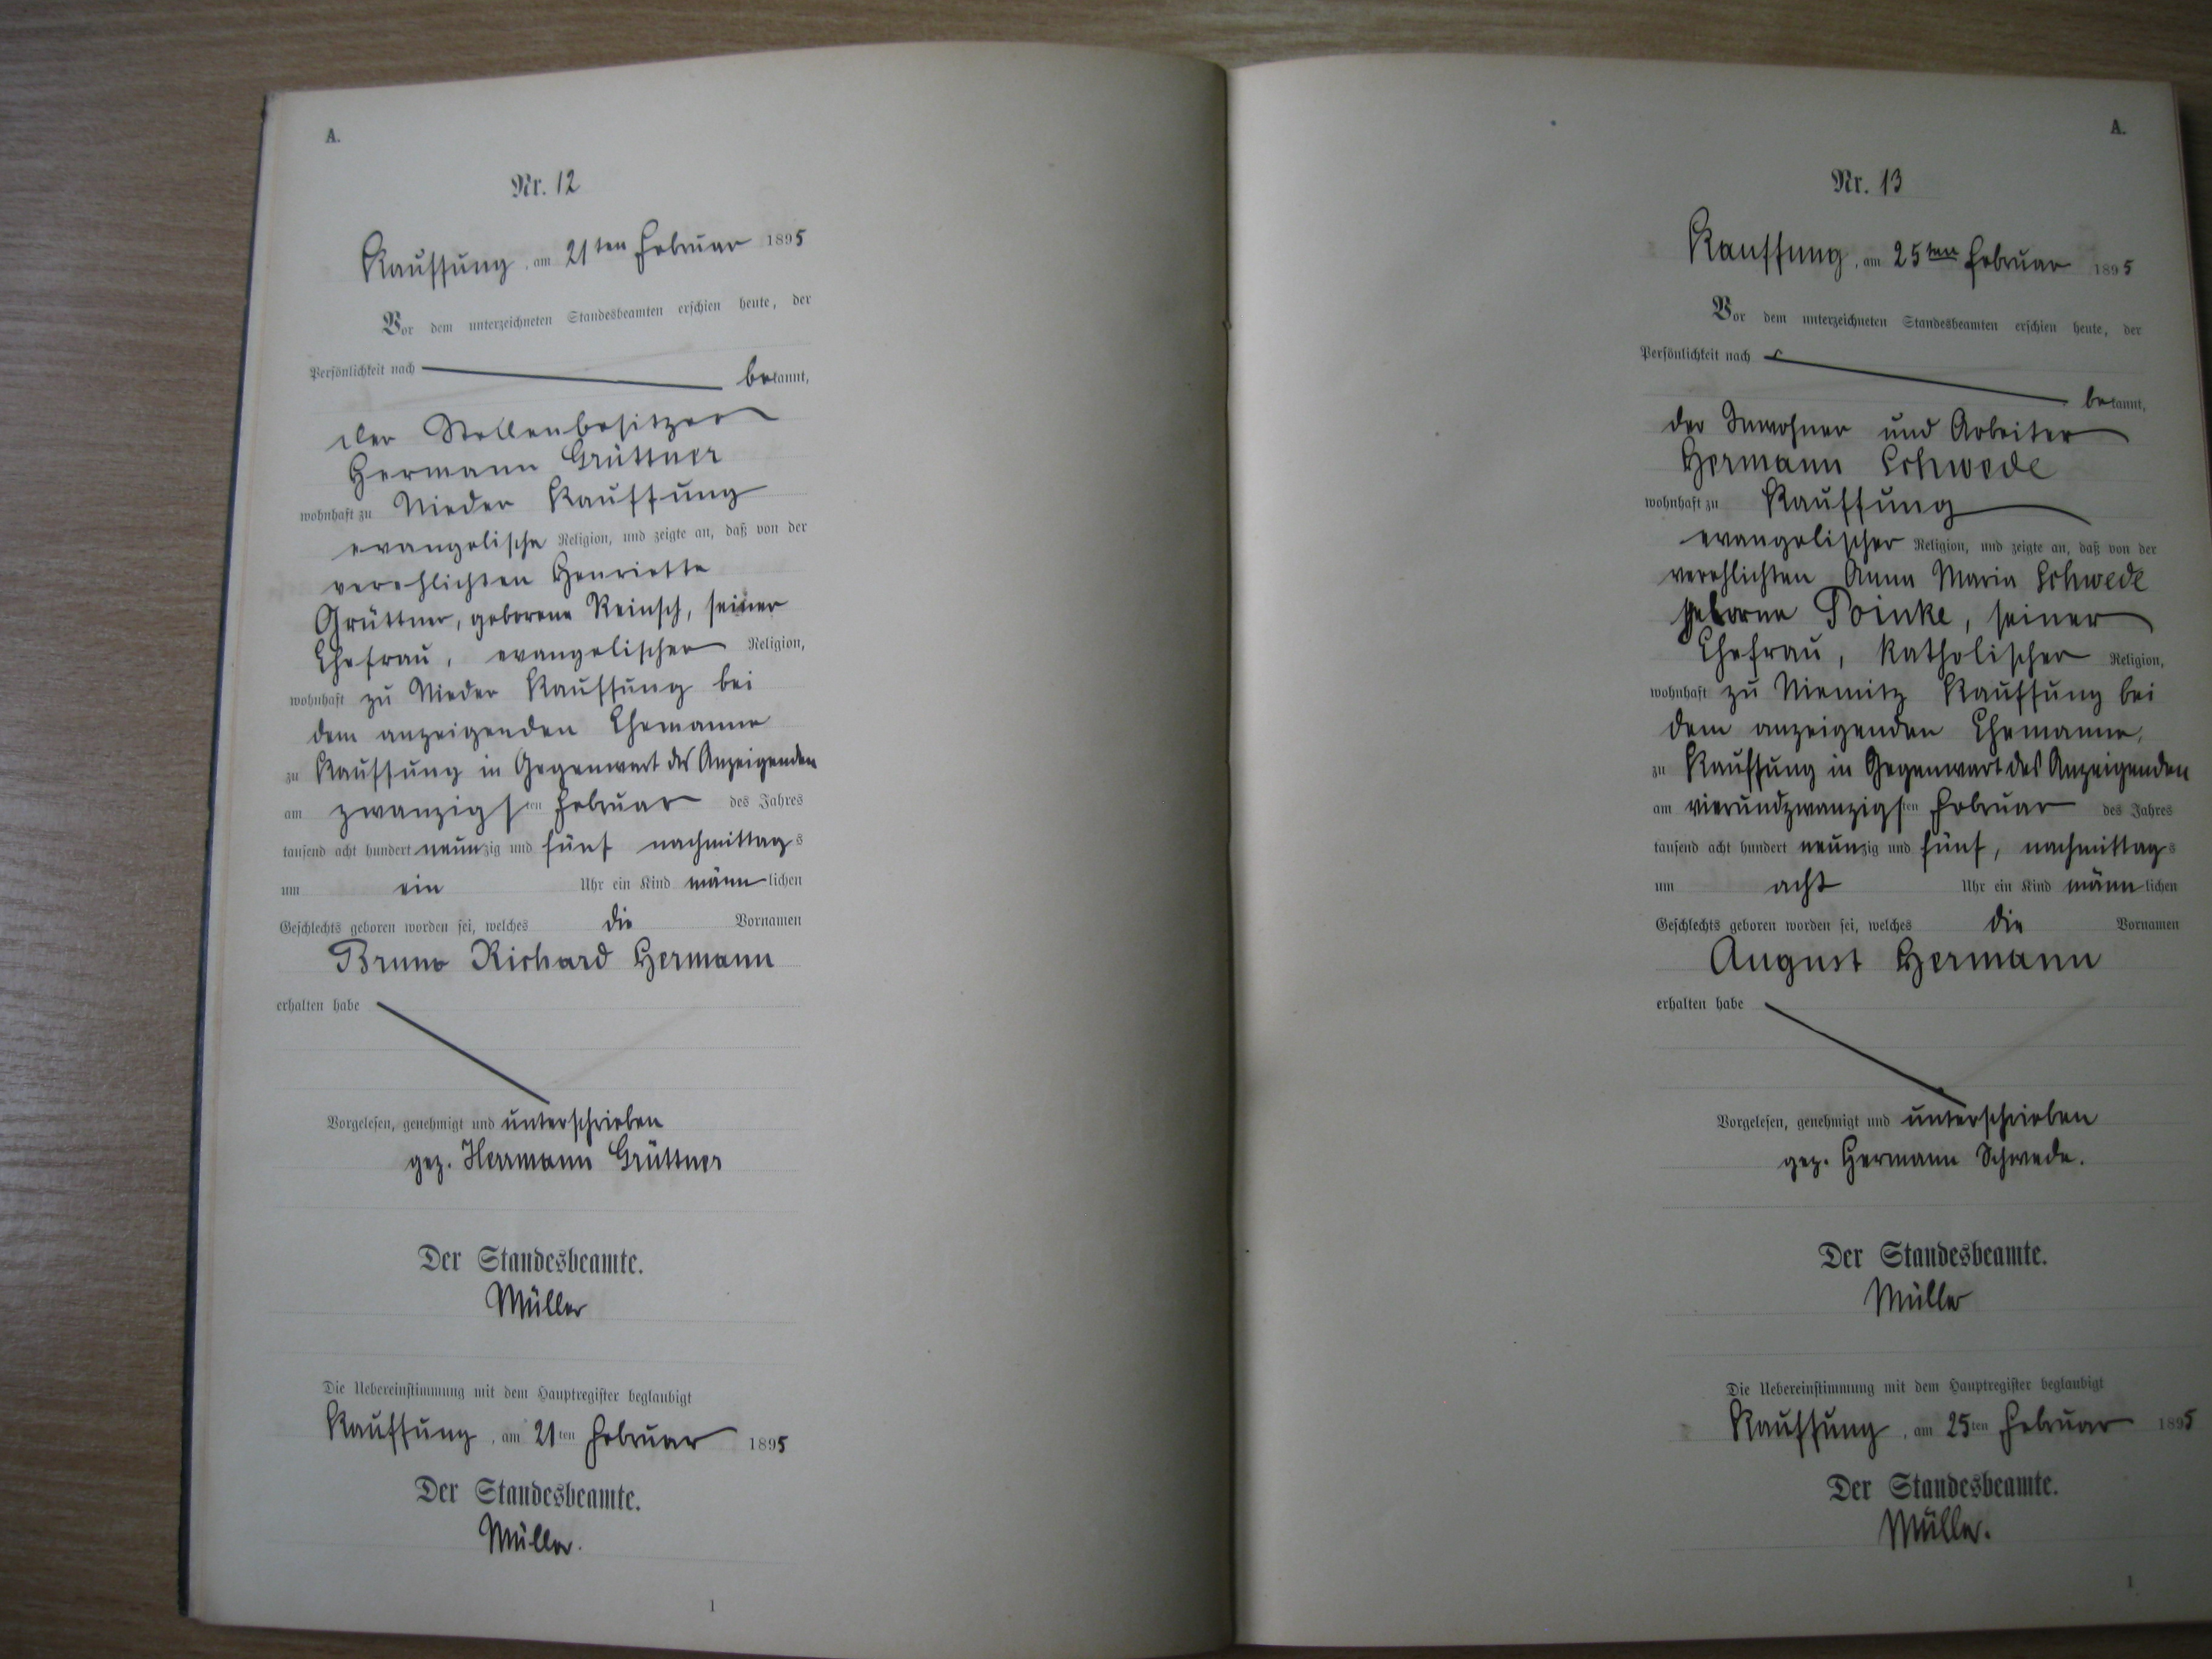 A.
Nr. 12
Kauffung, am 21ten Februar 1895
Vor dem unterzeichneten Standesbeamten erschien heute, der
Persönlichkeit nach bekannt,
der Stellenbesitzer
Hermann Grüttner
wohnhaft zu Nieder Kauffung
evangelische Religion, und zeigte an, daß von der
verehlichten Henriette
Grüttner, geborene Reinsch, seiner
Ehefrau, evangelischer Religion,
wohnhaft zu Nieder Kauffung bei
dem anzeigenden Ehemanne
zu Kauffung in Gegenwart des Anzeigenden
am zwanzigsten Februar des Jahres
tausend acht hundert neunzig und fünf nachmittags
um ein Uhr ein Kind männlichen
Geschlechts geboren worden sei, welches die Vornamen
Bruno Richard Hermann
erhalten habe
Vorgelesen, genehmigt und unterschrieben
gez. Herrmann Grüttner
Der Standesbeamte.
Müller
Die Uebereinstimmung mit dem Hauptregister beglaubigt
Kauffung, am 21ten Februar 1895
Der Standesbeamte.
Müller.
1
A.
Nr. 13
Kauffung, am 25ten Februar 1895
Vor dem unterzeichneten Standesbeamten erschien heute, der
Persönlichkeit nach bekannt,
der Inwohner und Arbeiter
Hermann Schwede
wohnhaft zu Kauffung
evangelischer Religion, und zeigte an, daß von der
verehlichten Anna Maria Schwede
geborne Poinke, seiner
Ehefrau, katholischer Religion,
wohnhaft zu Niemitz Kauffung bei
dem anzeigenden Ehemanne,
zu Kauffung in Gegenwart des Anzeigenden
am vierundzwanzigsten Februar des Jahres
tausend acht hundert neunzig und fünf, nachmittags
um acht Uhr ein Kind männlichen
Geschlechts geboren worden sei, welches die Vornamen
August Hermann
erhalten habe
Vorgelesen, genehmigt und unterschrieben
gez. Hermann Schwede.
Der Standesbeamte.
Müller
Die Uebereinstimmung mit dem Hauptregister beglaubigt
Kauffung, am 25ten Februar 1895
Der Standesbeamte.
Müller.
1